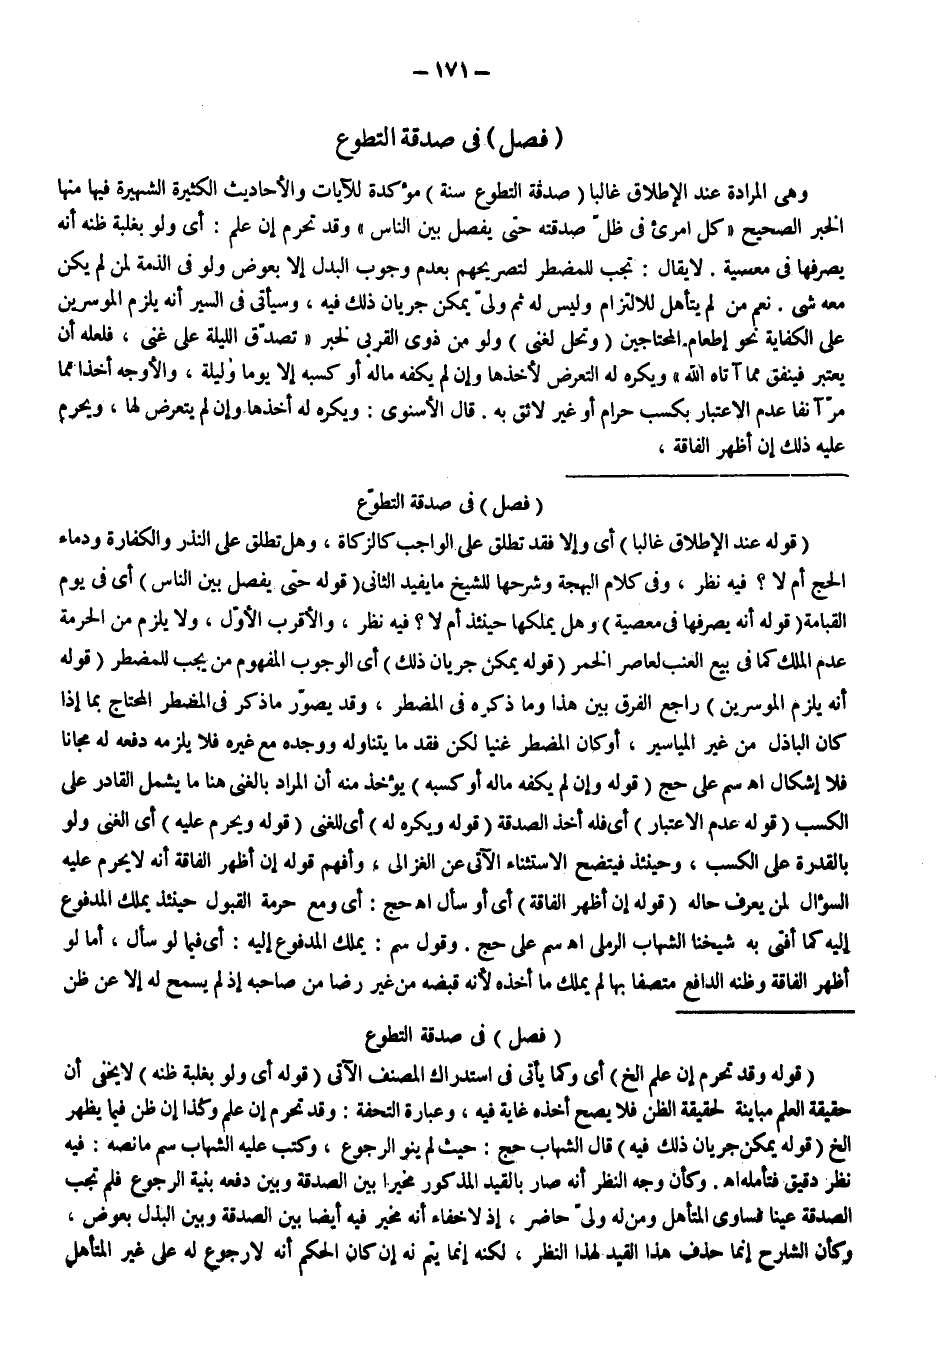 – ١٧١ –
( فصل ) فى صدقة التطوع
وهى المرادة عند الإطلاق غالبا ( صدقة التطوع سنة ) مؤكدة للآيات والأحاديث الكثيرة الشهيرة فيها منها
الخبر الصحيح « كل امرئ فى ظلّ صدقته حتى يفصل بين الناس » وقد تحرم إن علم : أى ولو بغلبة ظنه أنه
يصرفها فى معصية . لايقال : تجب للمضطر لتصريحهم بعدم وجوب البدل إلا بعوض ولو فى الذمة لمن لم يكن
معه شى . نعم من لم يتأهل للالتزام وليس له ثم ولىّ يمكن جريان ذلك فيه ، وسيأتى فى السير أنه يلزم الموسرين
على الكفاية نحو إطعام المحتاجين ( وتحل لغنى ) ولو من ذوى القربى لخبر « تصدّق الليلة على غنى ، فلعله أن
يعتبر فينفق مما آتاه الله » ويكره له التعرض لأخذها وإن لم يكفه ماله أو كسبه إلا يوما وليلة ، والأوجه أخذا مما
مرّ آنفا عدم الاعتبار بكسب حرام أو غير لائق به . قال الأسنوى : ويكره له أخذها وإن لم يتعرض لها ، ويحرم
عليه ذلك إن أظهر الفاقة ،
( فصل ) فى صدقة التطوّع
( قوله عند الإطلاق غالبا ) أى وإلا فقد تطلق على الواجب كالزكاة ، وهل تطلق على النذر والكفارة ودماء
الحج أم لا ؟ فيه نظر ، وفى كلام البهجة وشرحها للشيخ مايفيد الثانى ( قوله حتى يفصل بين الناس ) أى فى يوم
القيامة ( قوله أنه يصرفها فى معصية ) وهل يملكها حينئذ أم لا ؟ فيه نظر ، والأقرب الأوّل ، ولا يلزم من الحرمة
عدم الملك كما فى بيع العنب لعاصر الخمر ( قوله يمكن جريان ذلك ) أى الوجوب المفهوم من يجب للمضطر ( قوله
أنه يلزم الموسرين ) راجع الفرق بين هذا وما ذكره فى المضطر ، وقد يصوّر ماذكر فى المضطر المحتاج بما إذا
كان الباذل من غير المياسير ، أو كان المضطر غنيا لكن فقد ما يتناوله ووجده مع غيره فلا يلزمه دفعه له مجانا
فلا إشكال اه سم على حج ( قوله وإن لم يكفه ماله أو كسبه ) يؤخذ منه أن المراد بالغنى هنا ما يشمل القادر على
الكسب ( قوله عدم الاعتبار ) أى فله أخذ الصدقة ( قوله ويكره له ) أى للغنى ( قوله ويحرم عليه ) أى الغنى ولو
بالقدرة على الكسب ، وحينئذ فيتضح الاستثناء الآتى عن الغزالى ، وأفهم قوله إن أظهر الفاقة أنه لايحرم عليه
السؤال لمن يعرف حاله ( قوله إن أظهر الفاقة ) أى أو سأل اه حج : أى ومع حرمة القبول حينئذ يملك المدفوع
إليه كما أفتى به شيخنا الشهاب الرملى اه سم على حج . وقول سم : يملك المدفوع إليه : أى فيما لو سأل ، أما لو
أظهر الفاقة وظنه الدافع متصفا بها لم يملك ما أخذه لأنه قبضه من غير رضا من صاحبه إذ لم يسمح له إلا عن ظن
( فصل ) فى صدقة التطوع
( قوله وقد تحرم إن علم الخ ) أى وكما يأتى فى استدراك المصنف الآتى ( قوله أى ولو بغلبة ظنه ) لايخفى أن
حقيقة العلم مباينة لحقيقة الظن فلا يصح أخذه غاية فيه ، وعبارة التحفة : وقد تحرم إن علم وكذا إن ظن فيما يظهر
الخ ( قوله يمكن جريان ذلك فيه ) قال الشهاب حج : حيث لم ينو الرجوع ، وكتب عليه الشهاب سم مانصه : فيه
نظر دقيق فتأمله اه . وكأن وجه النظر أنه صار بالقيد المذكور مخيرا بين الصدقة وبين دفعه بنية الرجوع فلم تجب
الصدقة عينا فساوى المتأهل ومن له ولىّ حاضر ، إذ لاخفاء أنه مخير فيه أيضا بين الصدقة وبين البذل بعوض ،
وكأن الشارح إنما حذف هذا القيد لهذا النظر ، لكنه إنما يتم له إن كان الحكم أنه لارجوع له على غير المتأهل